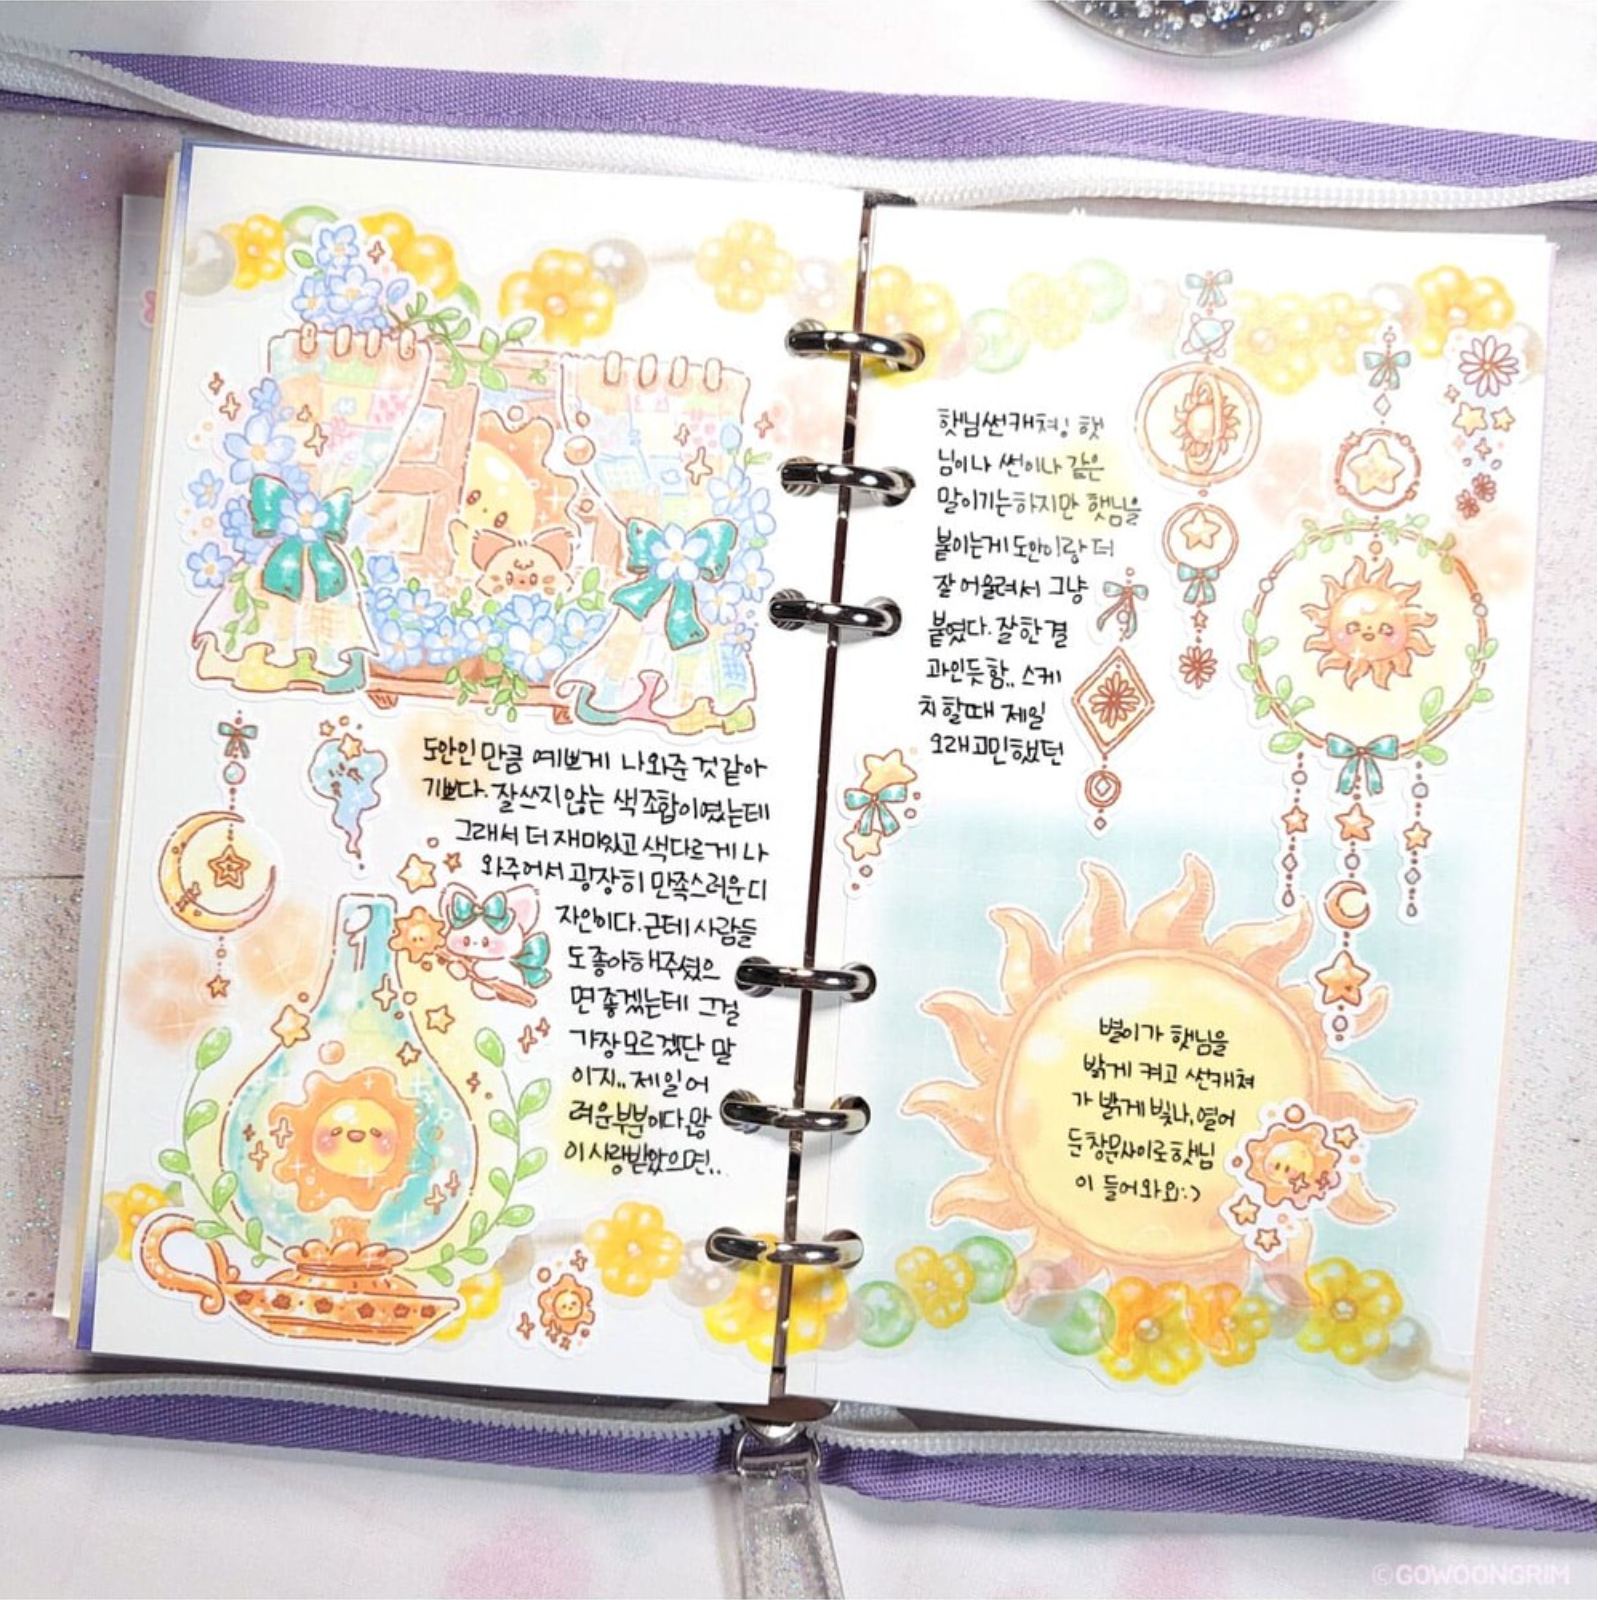 햇님썬캐쳐! 햇
님이나 썬이나 같은
말이기는하지만 햇님을
붙이는게 도안이랑 더
잘 어울려서 그냥
붙였다. 잘한 결
과인듯 함.. 스케
치 할때 제일
오래고민했던
도안인 만큼 예쁘게 나와준 것 같아
기쁘다. 잘쓰지않는 색조합이였는데
그래서 더 재미있고 색다르게 나
와주어서 굉장히 만족스러운 디
자인이다. 근데 사람들
도 좋아해주셨으
면 좋겠는데 그걸
가장 모르겠단 말
이지.. 제일 어
려운부분이다. 많
이 사랑받았으면..
별이가 햇님을
밝게 켜고 썬캐쳐
가 밝게 빛나, 열어
둔 창문사이로 햇님
이 들어와요:)
©GOWOONGRIM